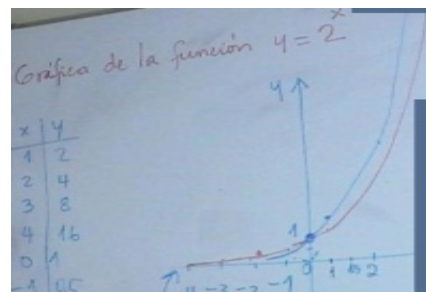 Gráfica de la función y = 2^x
x | y
1 | 2
2 | 4
3 | 8
4 | 16
0 | 1
y
1
-1 0 1 2